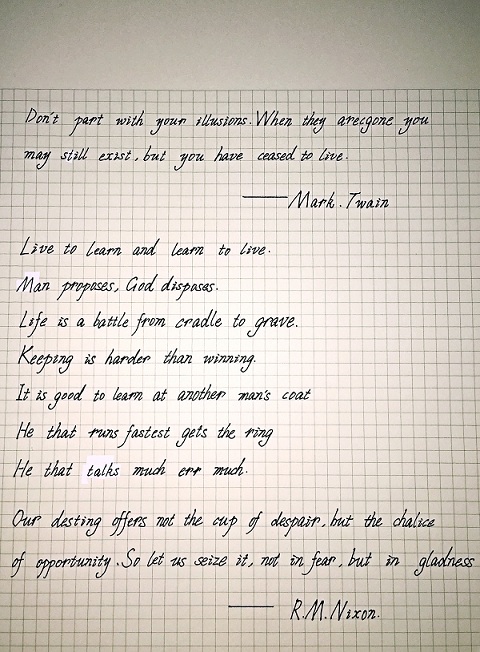 Don't part with your illusions. When they arecgone you
may still exist, but you have ceased to live.
—— Mark. Twain
Live to learn and learn to live.
Man proposes, God disposes.
Life is a battle from cradle to grave.
Keeping is harder than winning.
It is good to learn at another man's coat
He that runs fastest gets the ring
He that talks much err much.
Our desting offers not the cup of despair, but the chalice
of opportunity. So let us seize it, not in fear, but in gladness
—— R.M. Nixon.